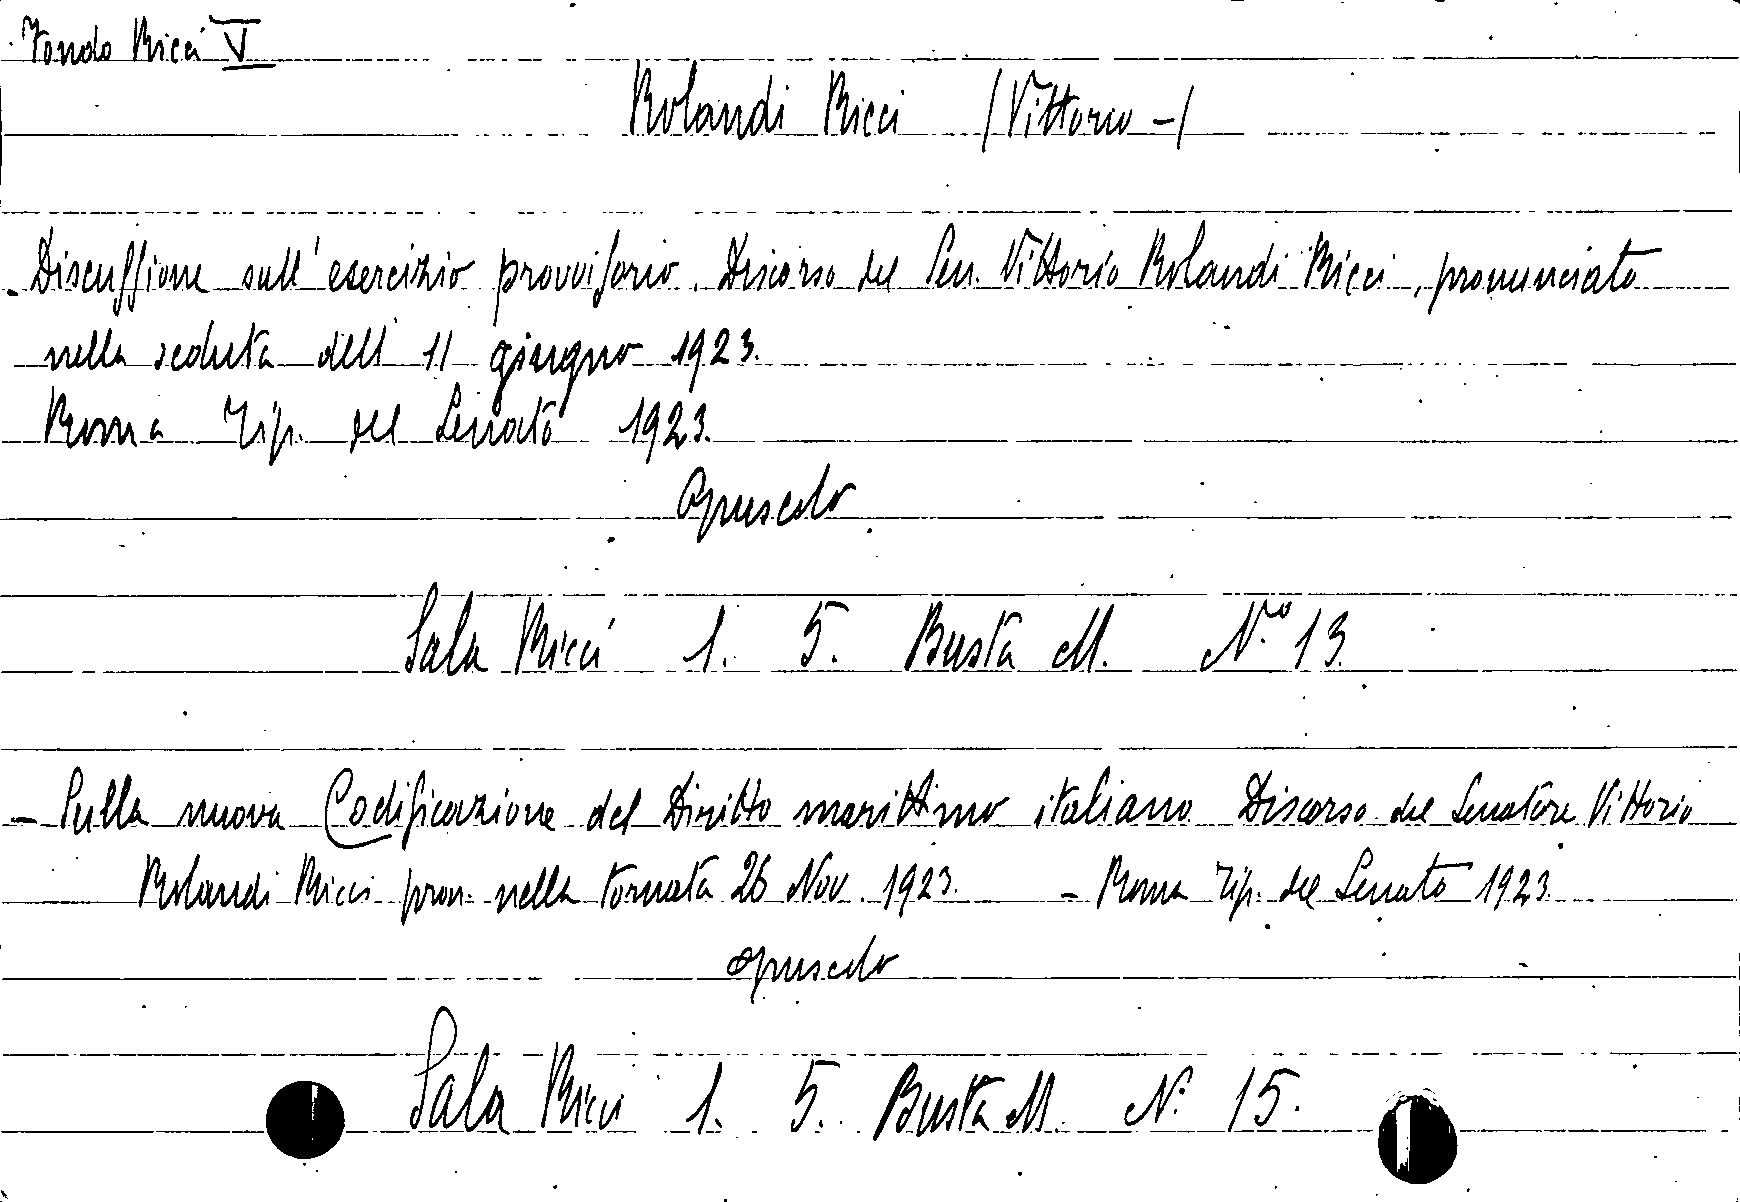 Fondo Ricci V
Rolandi Ricci (Vittorio -)
- Discussione sull'esercizio provvisorio. Discorso del Sen. Vittorio Rolandi Ricci, pronunciato
nella seduta dell' 11 giugno 1923.
Roma Tip. del Senato 1923.
Opuscolo
Sala Ricci 1. 5. Busta M. N.° 13.
- Sulla nuova Codificazione del Diritto marittimo italiano Discorso del Senatore Vittorio
Rolandi Ricci pron. nella tornata 26 Nov. 1923. - Roma Tip. del Senato 1923.
opuscolo
Sala Ricci 1. 5. Busta M. N. 15.